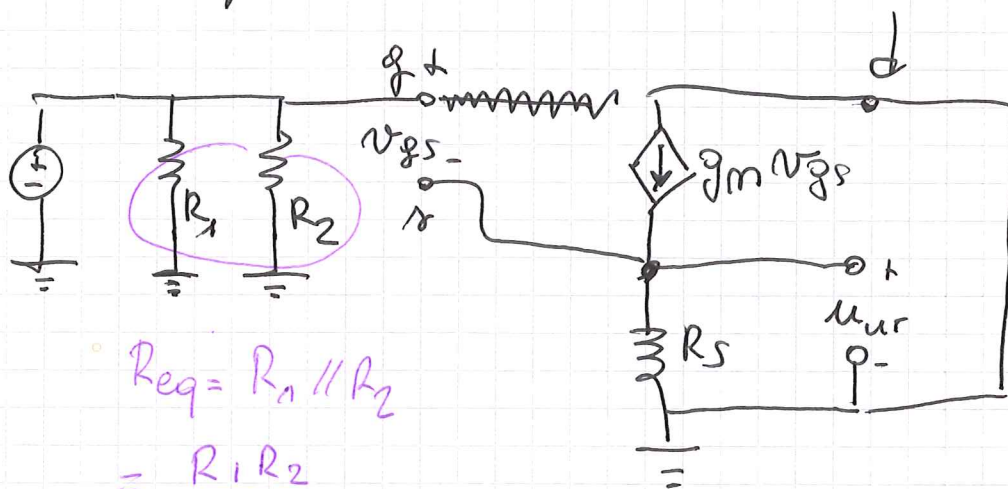 d
g +
vgs -
s
gm vgs
+
-
R1
R2
+
uur
-
RS
Req = R1 // R2
= R1R2